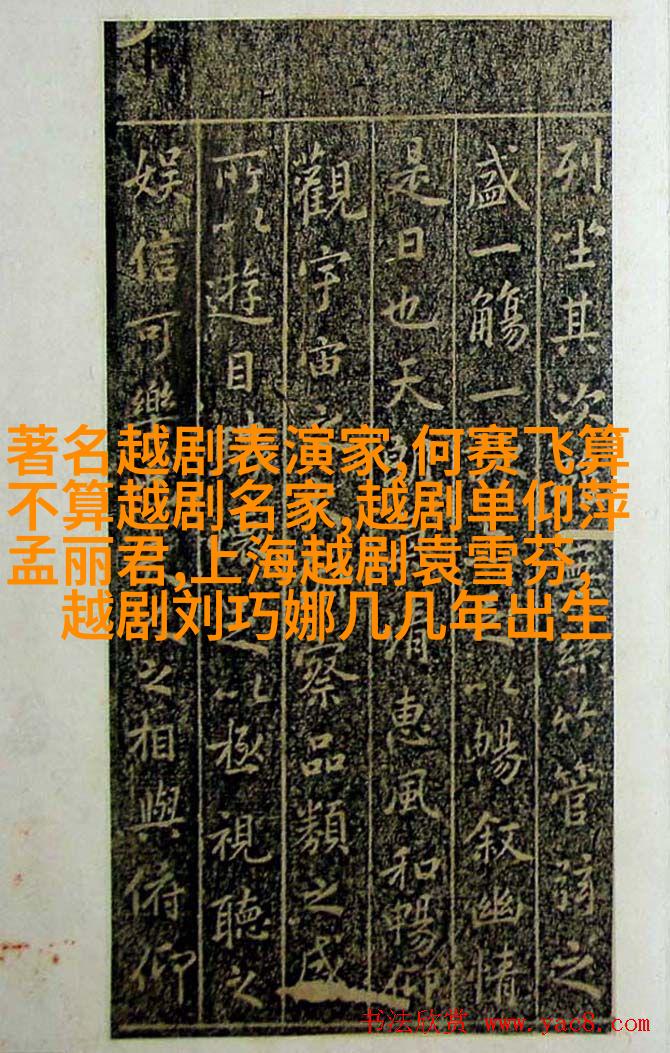 列坐其次無絲竹管弦之
盛一觴一以暢叙幽情
是日也天朗清惠風和暢仰
觀宇宙之察品類之盛
所以遊目足以極視聽之
娛信可樂之相與俯仰
著名越剧表演家,何赛飞算
不算越剧名家,越剧单仰萍
孟丽君,上海越剧袁雪芬,
越剧刘巧娜几几年出生
书法欣赏 www.yac8.com